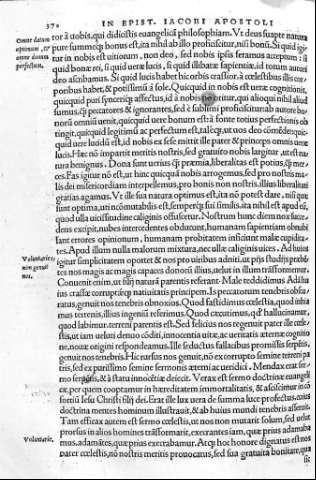 370 IN EPIST. IACOBI APOSTOLI
Omne datum
optimum, &
omne donum
perfectum.
tor à uobis, qui didicistis euangelicā philosophiam. Vt deus suapte natura
pure summeq; bonus est, ita nihil ab illo proficiscitur, nisi bonū. Si quid igi
tur in nobis est uitiorum, non deo, sed nobis ipsis feramus acceptum: si
quid bonæ rei, si quid ueræ lucis, si quid illibatæ sapientiæ, id totum autori
deo ascribamus. Si quid lucis habet hic orbis crassior, à cœlestibus illis cor-
poribus habet, & potissimū à sole. Quicquid in nobis est ueræ cognitionis,
quicquid puri synceriq; affectus, id à nobis oritur, qui alioqui nihil aliud
sumus, q̄ peccatores & ignorantes, sed è sublimi proficiscitur ab autore bo-
norū omniū uenit, quicquid uere bonū est à fonte totius perfectionis obs
tingit, quicquid legitimū ac perfectum est,
quid uere luddū est, id nobis ex sese mittit ille pater & princeps omnis ueræ
lucis. Hæc nō impartit meritis nostris, sed gratuito nobis largitur, ut est na-
tura benignus. Dona sunt uerius q̄ præmia, liberalitas est potius, q̄ mer-
ces. Fas igitur nō est, ut hinc quicquā nobis arrogemus, sed pro nostris ma-
lis dei misericordiam interpellemus, pro bonis non nostris, illius liberalitati
gratias agamus. Vt ille sua natura optimus est, ita nō potest dare, nisi quæ
sunt optima, uti incōmutabilis est, semperq; sui similis, ita nihil est apud eū,
quod ulla uicissitudine caliginis offuscetur. Nostrum hunc diem nox succe-
dens excipit, nubes intercedentes obducunt, humanam sapientiam obnubi
lant errores opinionum, humanam probitatem inficiunt malæ cupidita-
tes. Apud illum nulla malorum mixtura, nec ullæ caliginis uices. Ad huius
Voluntarie
nim genuit
nos.
igitur simplicitatem oportet & nos pro uiribus adniti, ut prijs studijs probita
tes nos magis ac magis capaces donorū illius, uelut in illum trāsformemur.
Conuenit enim, ut filij naturā parentis referant. Male tradiderat Adā ilu
ius crassæ corruptæq; natiuitatis principem. Is peccatorum tenebris obsu
ratus, genuit nos tenebris obnoxios. Quod fastidimus cœlestia, quod inhia
mus terrenis, illius ingeniū referimus. Quod cæcutimus, q̄d hallucinamur,
quod labimur, terreni parentis est. Sed felicius nos regenuit pater ille cœle-
stis, ut iam ueluti denuo cōditi, innocentia uitæ, ac ueritatis æternæ cognitio
ne, nouæ origini respondeamus. Ille seductus fallacibus promissis serpētis,
genuit nos tenebris. Hic rursus nos genuit, nō ex corrupto semine terreni pa
tris, sed ex purissimo semine sermonis æterni ac ueridici. Mendax erat ser-
mo serpētis, & à statu innocētiæ deiecit. Verax est sermo doctrinæ euangeli
cæ, per quem cooptamur in hæreditatem immortalitatis, & asciscimur in cō
sortiū Iesu Christi filij dei. Erat ille lux uera de summa luce profectus, cuius
doctrina mentes hominum illustrauit, & ab huius mundi tenebris asseruit.
Tam efficax autem est sermo cœlestis, ut nos non mutarit solum, sed uelut
prorsus in alios homines trāsformarit, execrantes iam, quæ prius adamaba
mus, adamātes, quæ prius execrabamur. Atq; hoc honore dignatus est nos
Voluntarie,
pater cœlestis, nō nostris meritis prouocatus, sed sua gratuita bonitate, qua